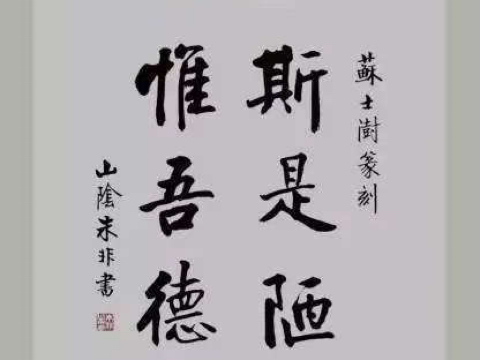 蘇士澍篆刻
斯是陋
惟吾德
山陰朱非書